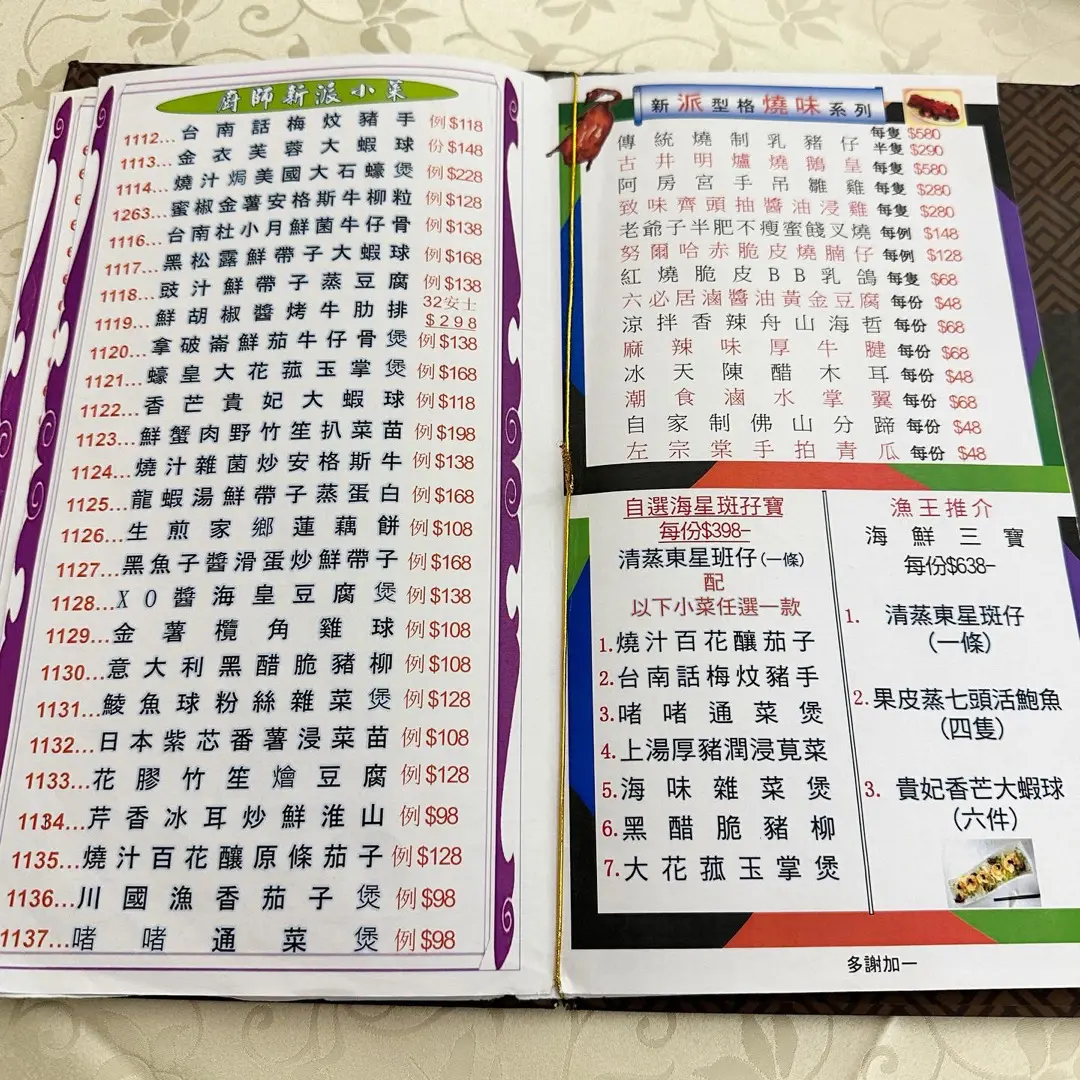 廚師新派小菜
1112...台南話梅炆豬手 例$118
1113...金衣芙蓉大蝦球 份$148
1114...燒汁焗美國大石蠔煲 例$228
1263...蜜椒金薯安格斯牛柳粒 例$128
1116...台南杜小月鮮菌牛仔骨 例$138
1117...黑松露鮮帶子大蝦球 例$168
1118...豉汁鮮帶子蒸豆腐 例$138
1119...鮮胡椒醬烤牛肋排 32安士 $298
1120...拿破崙鮮茄牛仔骨煲 例$138
1121...蠔皇大花菰玉掌煲 例$168
1122...香芒貴妃大蝦球 例$118
1123...鮮蟹肉野竹笙扒菜苗 例$198
1124...燒汁雜菌炒安格斯牛 例$138
1125...龍蝦湯鮮帶子蒸蛋白 例$168
1126...生煎家鄉蓮藕餅 例$108
1127...黑魚子醬滑蛋炒鮮帶子 例$168
1128...XO醬海皇豆腐煲 例$138
1129...金薯欖角雞球 例$108
1130...意大利黑醋脆豬柳 例$108
1131...鯪魚球粉絲雜菜煲 例$128
1132...日本紫芯番薯浸菜苗 例$108
1133...花膠竹笙燴豆腐 例$128
1134...芹香冰耳炒鮮淮山 例$98
1135...燒汁百花釀原條茄子 例$128
1136...川國漁香茄子煲 例$98
1137...啫啫通菜煲 例$98
新派型格燒味系列
傳統燒制乳豬仔 每隻 $580 半隻 $290
古井明爐燒鵝皇 每隻 $580
阿房宮手吊雛雞 每隻 $280
致味齊頭抽醬油浸雞 每隻 $280
老爺子半肥不瘦蜜餞叉燒 每例 $148
努爾哈赤脆皮燒腩仔 每例 $128
紅燒脆皮BB乳鴿 每隻 $68
六必居滷醬油黃金豆腐 每份 $48
涼拌香辣舟山海哲 每份 $68
麻辣味厚牛腱 每份 $68
冰天陳醋木耳 每份 $48
潮食滷水掌翼 每份 $68
自家制佛山分蹄 每份 $48
左宗棠手拍青瓜 每份 $48
自選海星斑孖寶
每份$398-
清蒸東星班仔(一條)
配
以下小菜任選一款
1.燒汁百花釀茄子
2.台南話梅炆豬手
3.啫啫通菜煲
4.上湯厚豬潤浸莧菜
5.海味雜菜煲
6.黑醋脆豬柳
7.大花菰玉掌煲
漁王推介
海鮮三寶
每份$638-
1. 清蒸東星斑仔
(一條)
2.果皮蒸七頭活鮑魚
(四隻)
3. 貴妃香芒大蝦球
(六件)
多謝加一